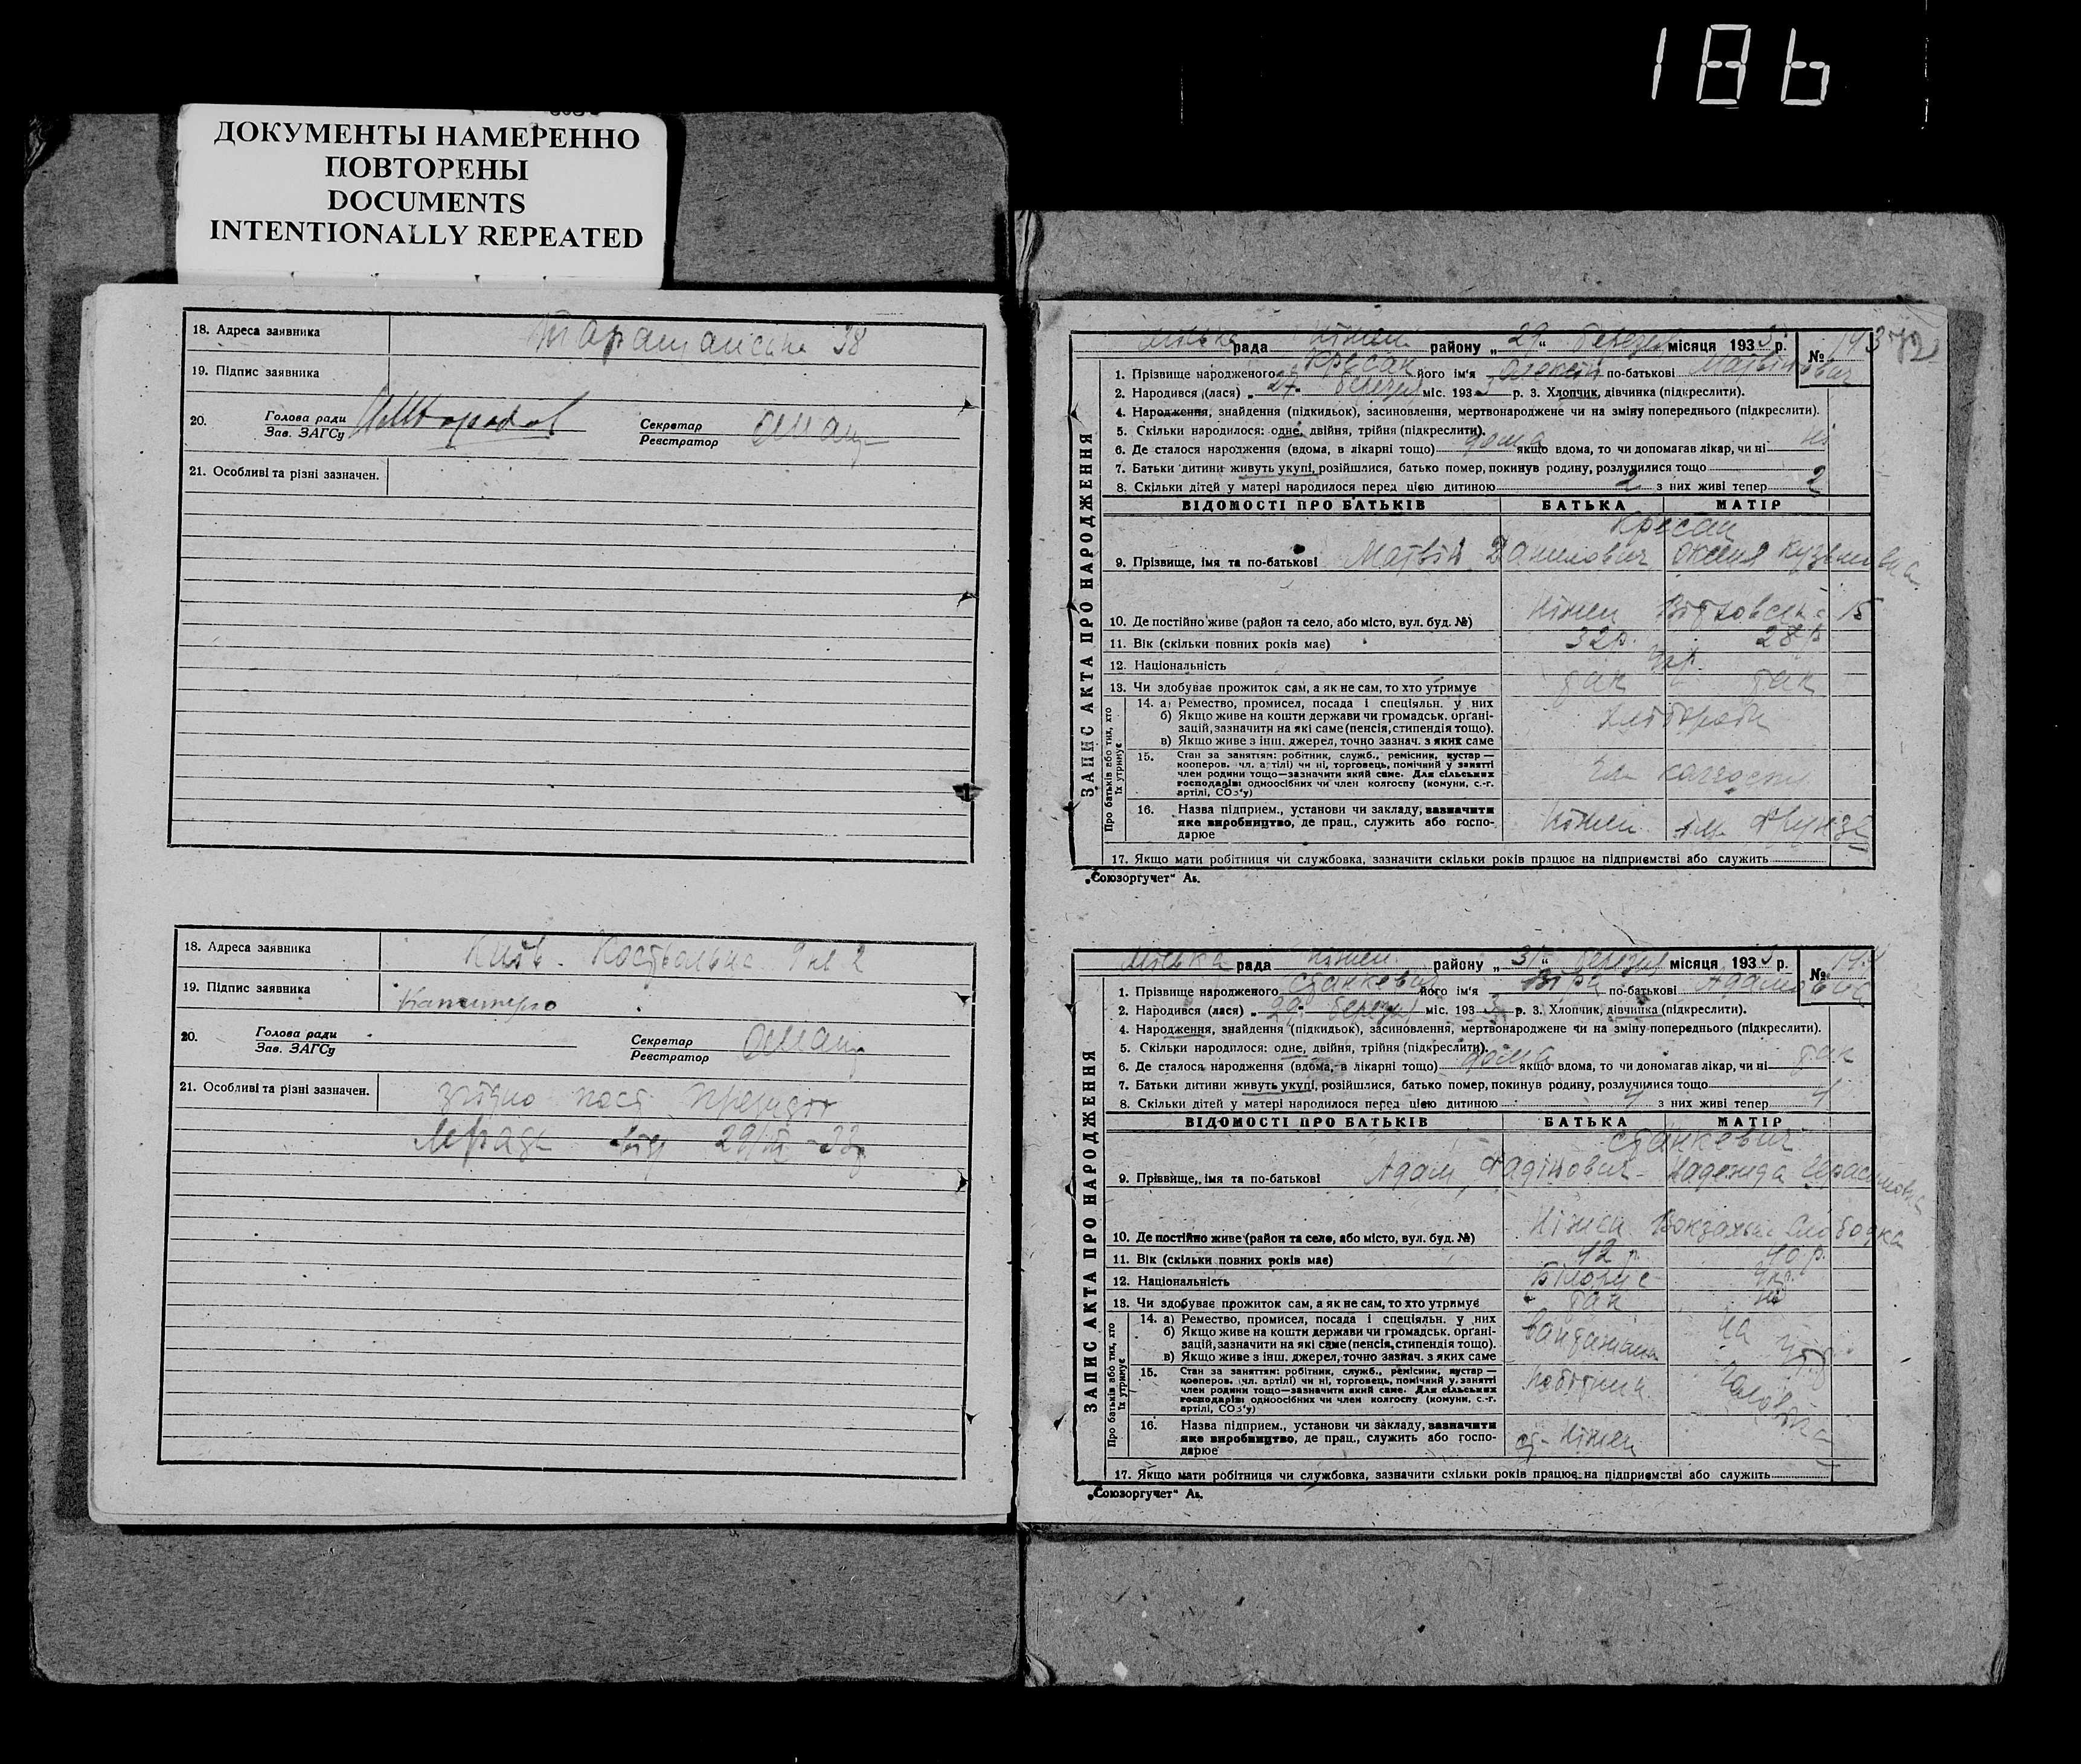 186
ДОКУМЕНТЫ НАМЕРЕННО
ПОВТОРЕНЫ
DOCUMENTS
INTENTIONALLY REPEATED
18. Адреса заявника
38
19. Підпис заявника
20. Голова ради
Зав. ЗАГСу
Секретар
Реєстратор
21. Особливі та різні зазначен.
18. Адреса заявника Київ. 2
19. Підпис заявника
20. Голова ради
Зав. ЗАГСу
Секретар
Реєстратор
21. Особливі та різні зазначен. згідно пост
від 29/III-33
372
ЗАПИС АКТА ПРО НАРОДЖЕННЯ
Міська рада Ніжен району „29“ березня місяця 1933 р. №
1. Прізвище народженого Кресан його ім'я Олексій по-батькові Матвійович
2. Народився (лася) „27“ березня міс. 1933 р. 3. Хлопчик, дівчинка (підкреслити).
4. Народження, знайдення (підкидьок), засиновлення, мертвонароджене чи на зміну попереднього (підкреслити).
5. Скільки народилося: одне, двійня, трійня (підкреслити).
6. Де сталося народження (вдома, в лікарні тощо) дома якщо вдома, то чи допомагав лікар, чи ні ні
7. Батьки дитини живуть укупі, розійшлися, батько помер, покинув родину, розлучилися тощо
8. Скільки дітей у матері народилося перед цією дитиною 2 з них живі тепер 2
ВІДОМОСТІ ПРО БАТЬКІВ БАТЬКА МАТІР
Кресан
9. Прізвище, імя та по-батькові Матвій Данилович Оксенія Кузьмівна
10. Де постійно живе (район та село, або місто, вул. буд. №) Ніжен 15
11. Вік (скільки повних років має) 32р. 28р
12. Національність Укр.
13. Чи здобуває прожиток сам, а як не сам, то хто утримує так так
Про батьків або тих, хто їх утримує
14. а) Ремество, промисел, посада і спеціяльн. у них
б) Якщо живе на кошти держави чи громадськ. органі-
зацій, зазначити на які саме (пенсія, стипендія тощо).
в) Якщо живе з інш. джерел, точно зазнач. з яких саме
15. Стан за заняттям: робітник, служб., ремісник, кустар —
кооперов. чл. артілі) чи ні, торговець, помічний у занятті
член родини тощо—зазначити який саме. Для сільських
господарів: одноосібних чи член колгоспу (комуни, с.-г.
артілі, СОЗ'у)
чл колгоспу
16. Назва підприєм., установи чи закладу, зазначити
яке виробництво, де прац., служить або госпо-
дарює
Ніжен ім. Фрунзе
17. Якщо мати робітниця чи службовка, зазначити скільки років працює на підприємстві або служить
„Союзоргучет“ Ав.
ЗАПИС АКТА ПРО НАРОДЖЕННЯ
Міська рада Ніжен району „31“ березня місяця 1933 р. №
1. Прізвище народженого Станкевич його ім'я Віра по-батькові Адамовна
2. Народився (лася) „29“ березня міс. 1933 р. 3. Хлопчик, дівчинка (підкреслити).
4. Народження, знайдення (підкидьок), засиновлення, мертвонароджене чи на зміну попереднього (підкреслити).
5. Скільки народилося: одне, двійня, трійня (підкреслити).
6. Де сталося народження (вдома, в лікарні тощо) дома якщо вдома, то чи допомагав лікар, чи ні так
7. Батьки дитини живуть укупі, розійшлися, батько помер, покинув родину, розлучилися тощо
8. Скільки дітей у матері народилося перед цією дитиною 4 з них живі тепер 4
ВІДОМОСТІ ПРО БАТЬКІВ БАТЬКА МАТІР
Станкевич
9. Прізвище, імя та по-батькові Адам Фадійович Надежда Герасимовна
10. Де постійно живе (район та село, або місто, вул. буд. №) Ніжен Вокзальна Слободка
11. Вік (скільки повних років має) 42 р. 40 р.
12. Національність Білорус Укр.
13. Чи здобуває прожиток сам, а як не сам, то хто утримує так ні
Про батьків або тих, хто їх утримує
14. а) Ремество, промисел, посада і спеціяльн. у них
б) Якщо живе на кошти держави чи громадськ. органі-
зацій, зазначити на які саме (пенсія, стипендія тощо).
в) Якщо живе з інш. джерел, точно зазнач. з яких саме
на утр
15. Стан за заняттям: робітник, служб., ремісник, кустар —
кооперов. чл. артілі) чи ні, торговець, помічний у занятті
член родини тощо—зазначити який саме. Для сільських
господарів: одноосібних чи член колгоспу (комуни, с.-г.
артілі, СОЗ'у)
робітник чоловіка
16. Назва підприєм., установи чи закладу, зазначити
яке виробництво, де прац., служить або госпо-
дарює
ст. Ніжен
17. Якщо мати робітниця чи службовка, зазначити скільки років працює на підприємстві або служить
„Союзоргучет“ Ав.